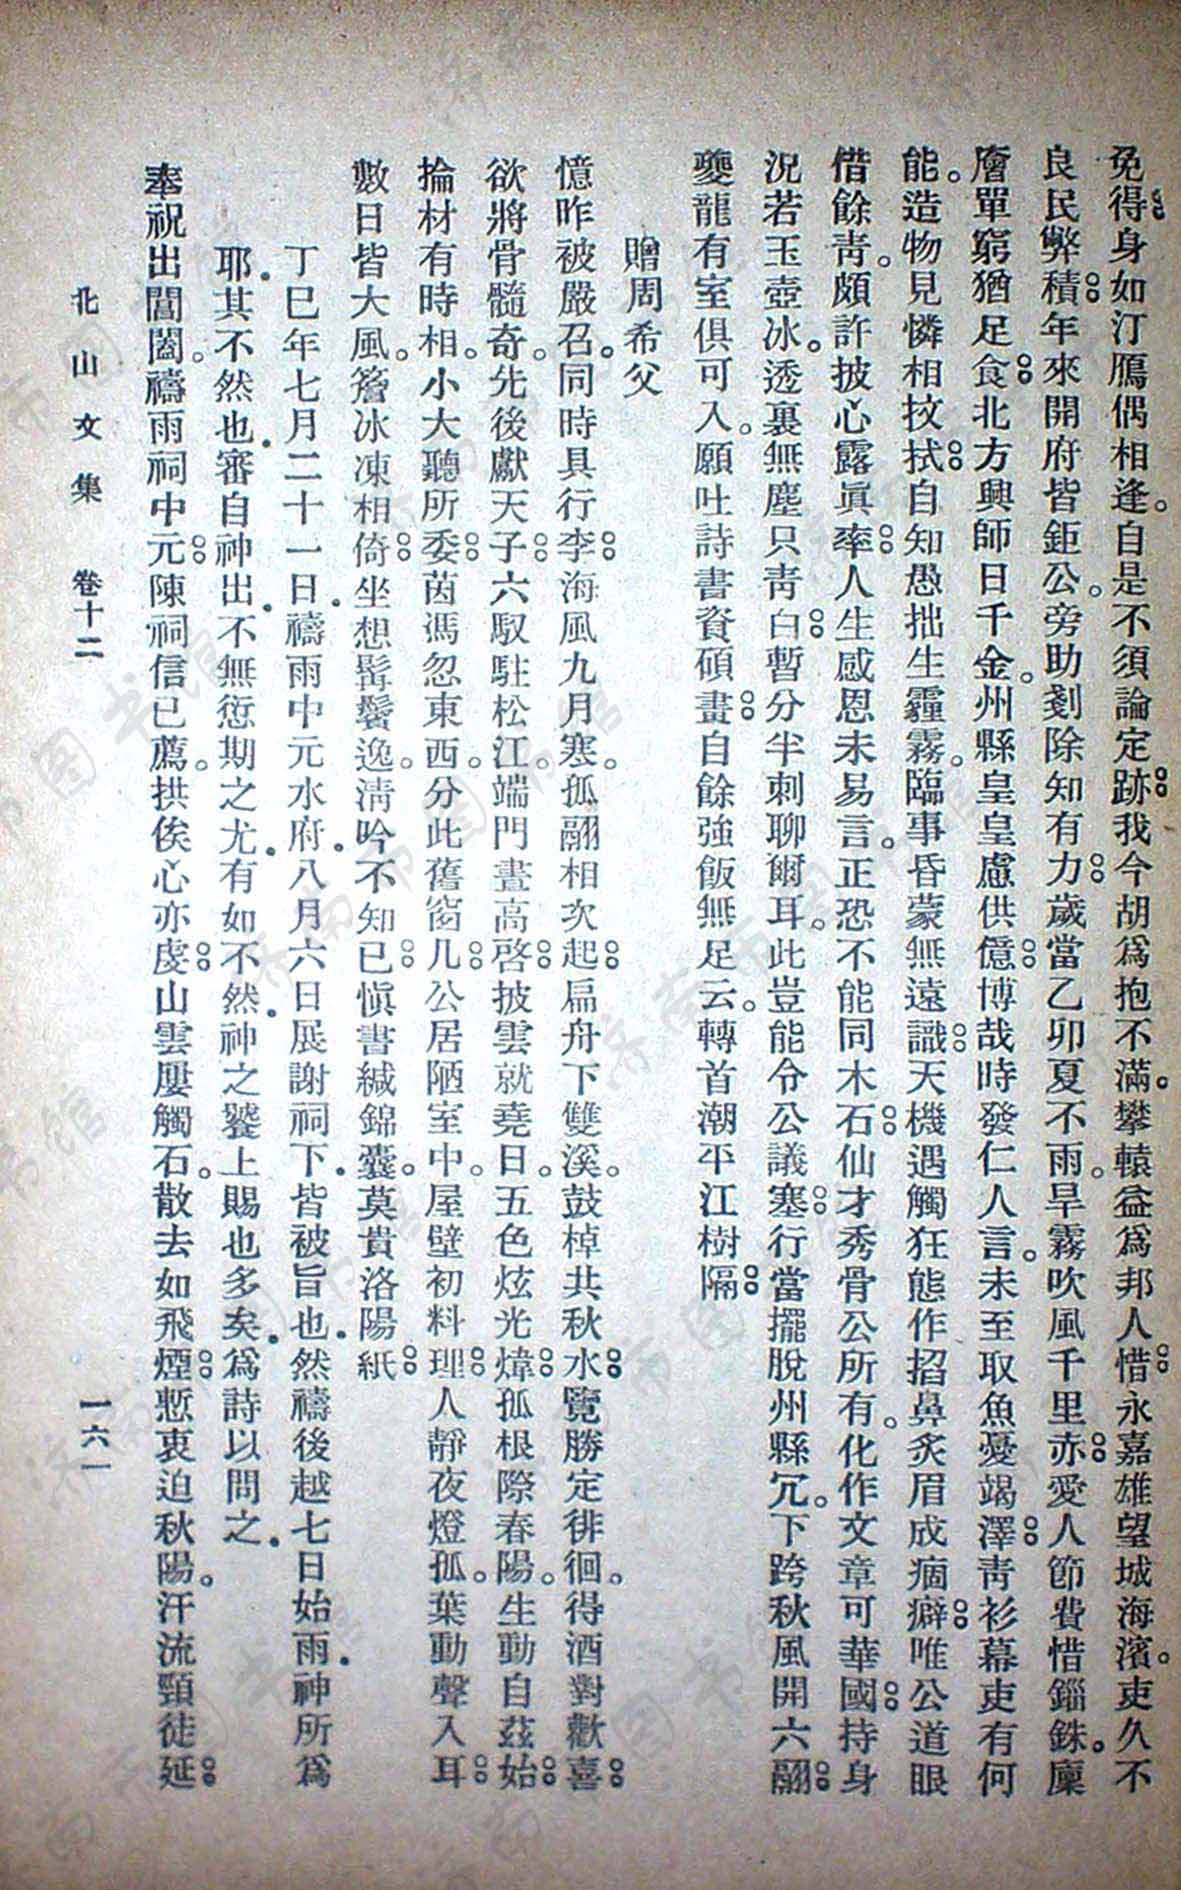 免得身如汀鴈偶相逢。自是不須論定跡我今胡爲抱不滿。攀轅益爲邦人惜永嘉雄望城海濱。吏久不
良民弊積年來開府皆鉅公。旁助剗除知有力歲當乙卯夏不雨。旱霧吹風千里赤愛人節費惜錙銖。廩
廥單窮猶足食北方興師日千金。州縣皇皇慮供億博哉時發仁人言。未至取魚憂竭澤青衫幕吏有何
能。造物見憐相抆拭自知愚拙生霾霧。臨事昏蒙無遠識天機遇觸狂態作掐鼻炙眉成痼癖唯公道眼
借餘靑。頗許披心露眞率人生感恩未易言。正恐不能同木石仙才秀骨公所有。化作文章可華國持身
況若玉壺冰。透裏無塵只靑白暫分半刺聊爾耳。此豈能令公議塞行當擺脫州縣冗。下跨秋風開六翮
夔龍有室俱可入。願吐詩書資碩畫自餘強飯無足云。轉首潮平江樹隔
贈周希父
憶昨被嚴召。同時具行李海風九月寒。孤翮相次起扁舟下雙溪。鼓棹共秋水覽勝定徘徊。得酒對歡喜
欲將骨髓奇。先後獻天子六馭駐松江。端門晝高啓披雲就堯日。五色炫光煒孤根際春陽。生動自茲始
掄材有時相。小大聽所委茵馮忽東西。分此舊窗几公居陋室中。屋壁初料理人靜夜燈孤。葉動聲入耳
數日皆大風。簷冰凍相倚坐想髯鬢逸。淸吟不知已愼書緘錦囊。莫貴洛陽紙
丁巳年七月二十一日。禱雨中元水府。八月六日展謝祠下。皆被旨也。然禱後越七日始雨。神所爲
耶。其不然也。審自神出。不無愆期之尤。有如不然。神之饕上賜也多矣。爲詩以問之。
奉祝出閶闔。禱雨祠中元陳祠信已薦。拱俟心亦虔山雲屢觸石。散去如飛煙慙衷迫秋陽。汗流頸徒延
北山文集 卷十二 一六一